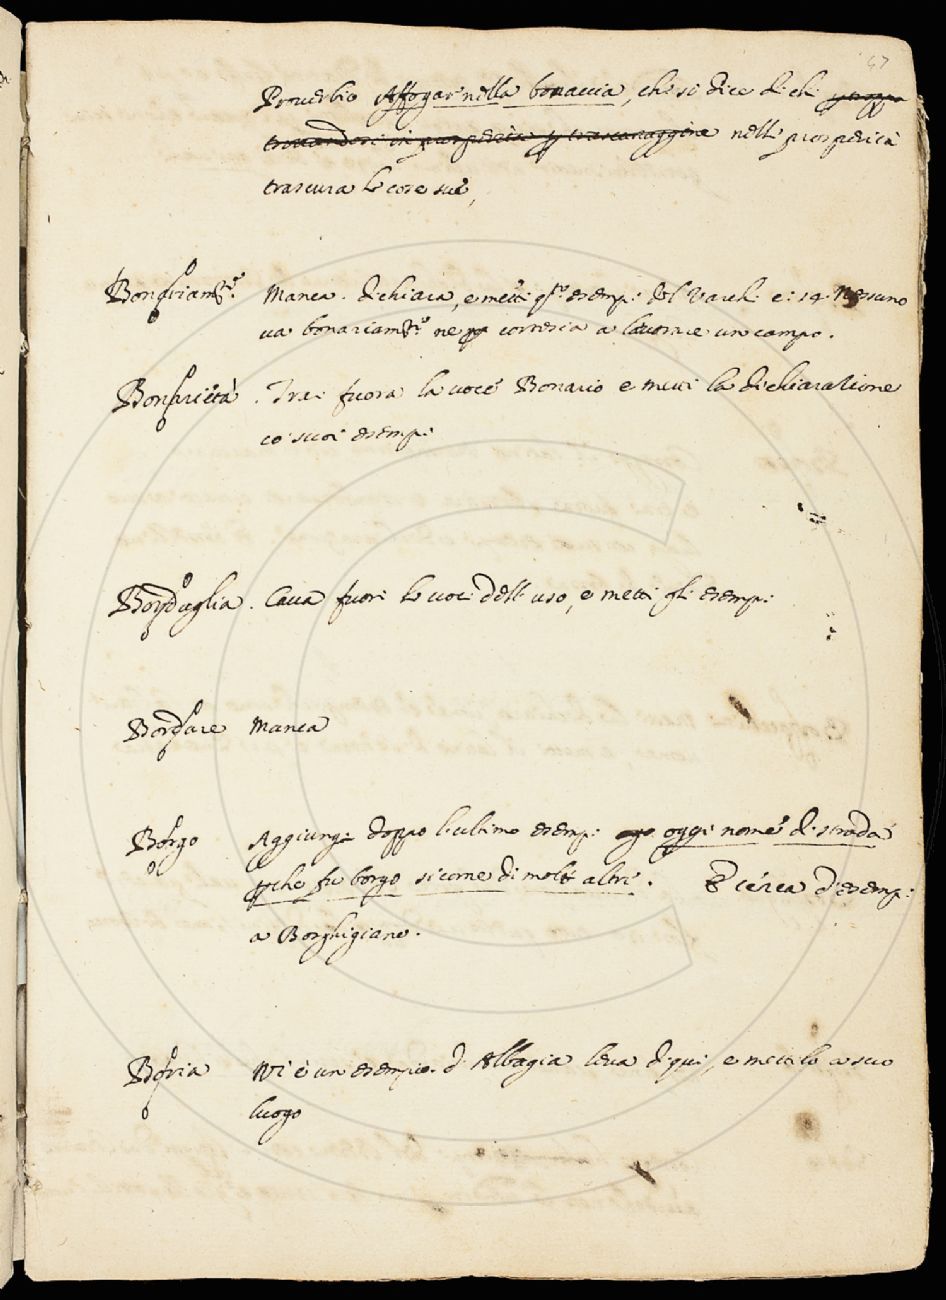 47
Proverbio Affogar nella bonaccia, che si dice di chi p troppa
trovandosi in prosperità p trascuraggine nella prosperità
trascura le cose sue,
Bonariamte. Manca. dichiara, e metti qsto esemp: del Varchi e: 14. Nessuno
va bonariamte ne p cortesia a lavorare un campo.
Bonarietà. Trai fuora la voce Bonario e metti la dichiarazione
co suoi esemp:
Bordaglia. Cava fuori le voci dell uso, e metti gli esemp:
Bordare Manca
Borgo Aggiungi doppo l'ultimo esemp: oggi nome di strada
pche fu borgo sicome di molte altri. E cerca d'esemp:
a Borghigiano.
Boria Vi è un esempio d'Albagia leva di qui, e mettilo a suo
luogo